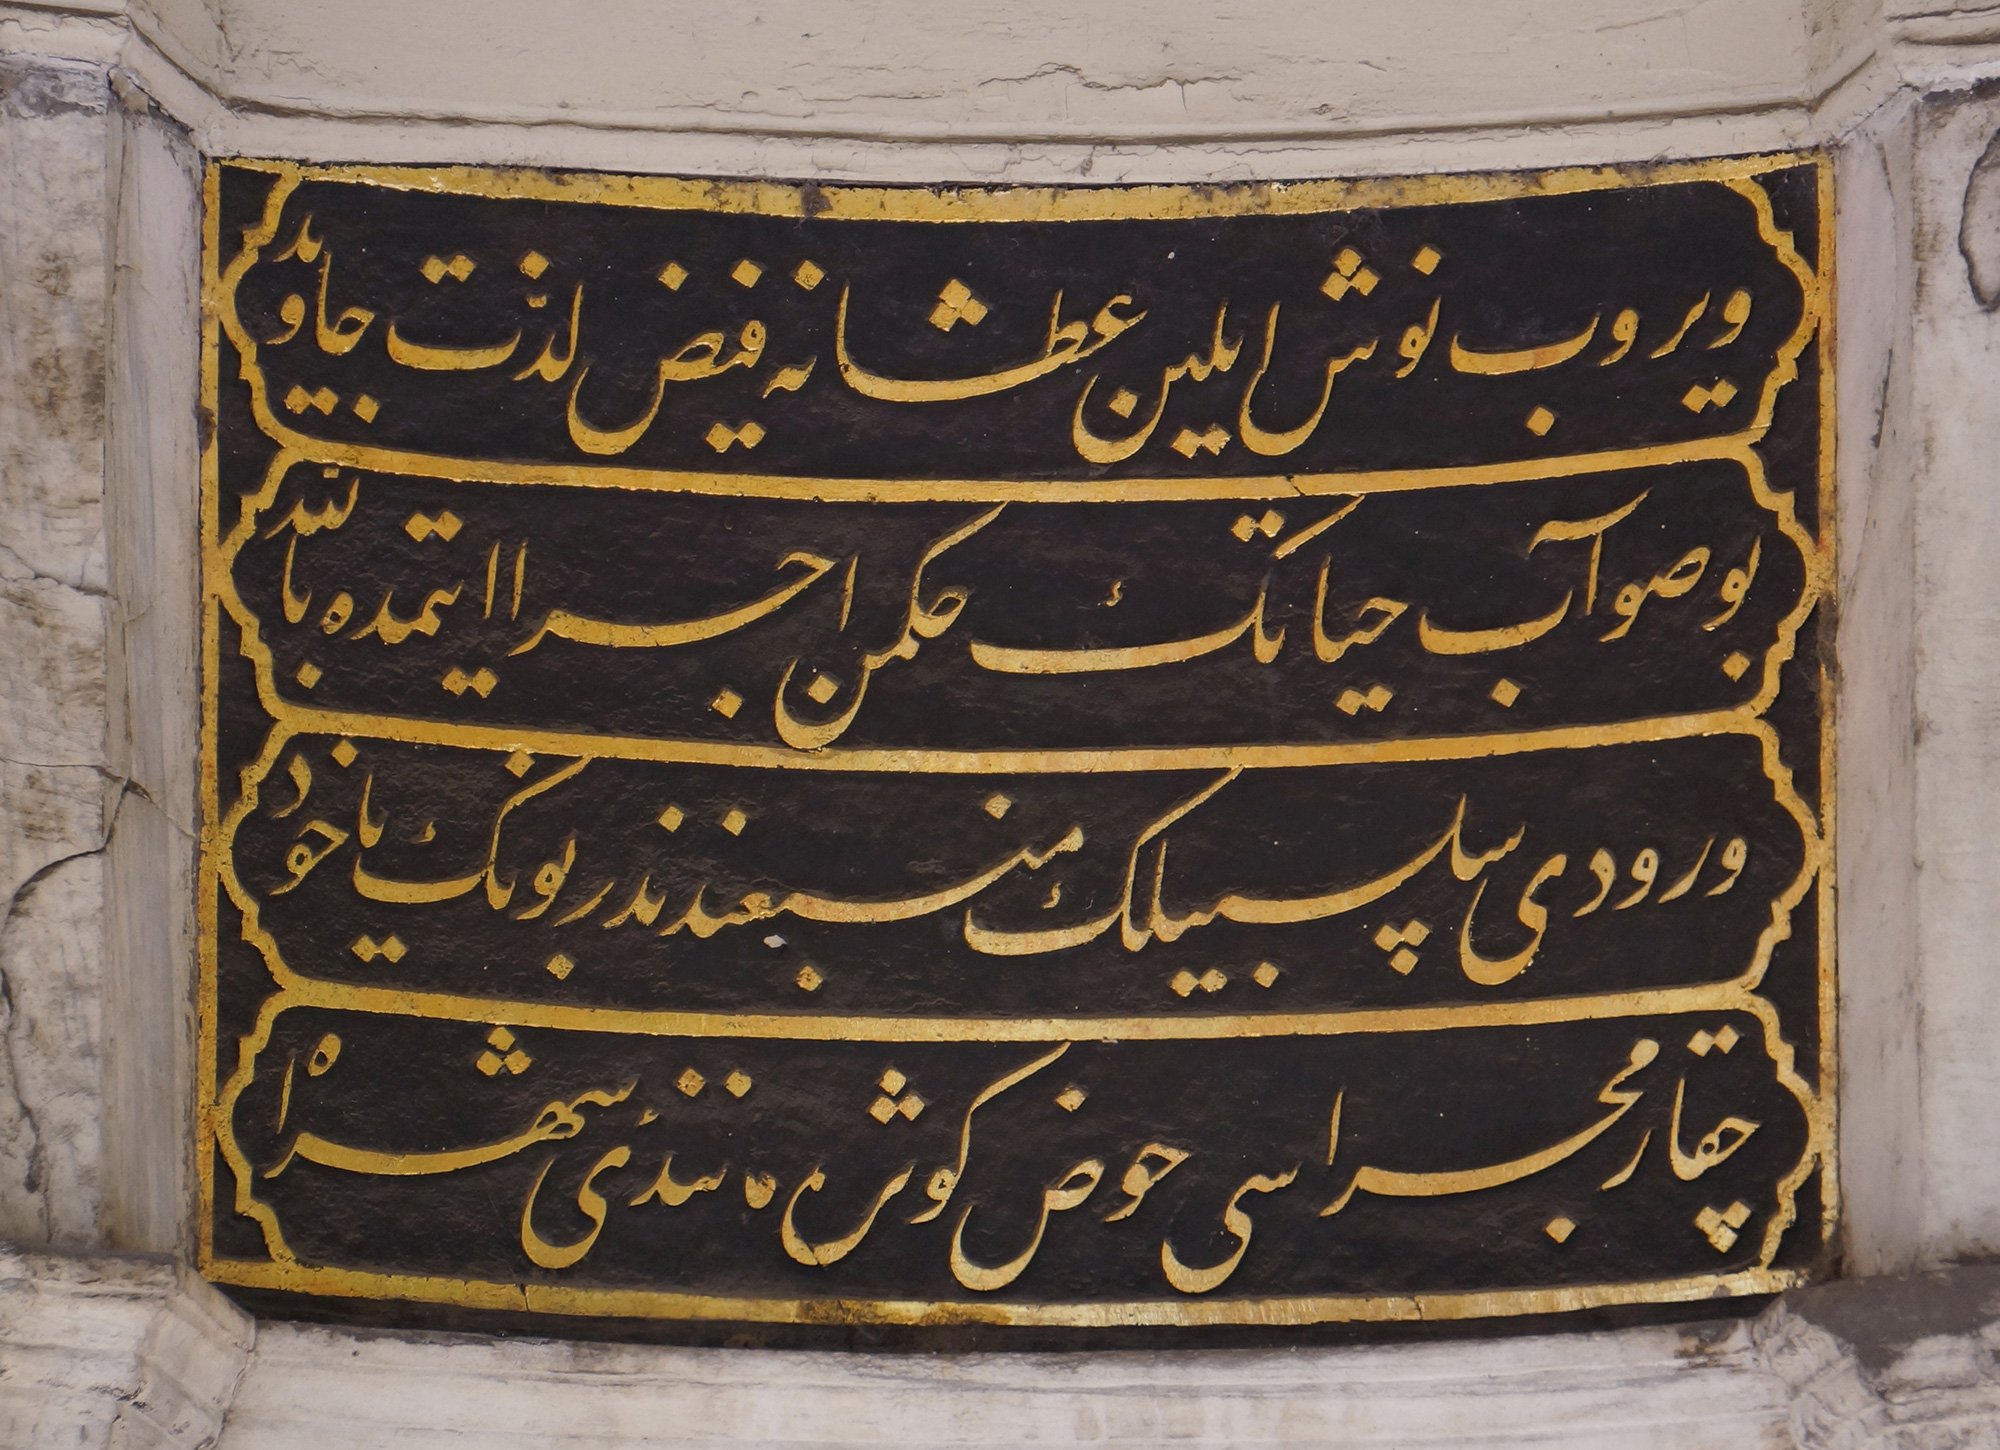 ویروب نوش ایلین عطشانه فیض لذّت جاوید
بو صو آب حیاتڭ حکمن اجرا ایتمده بالله
ورودی سلسبیلڭ منبعندندر بونڭ یاخود
چقار مجراسی حوض کوثره تندئ شهراه